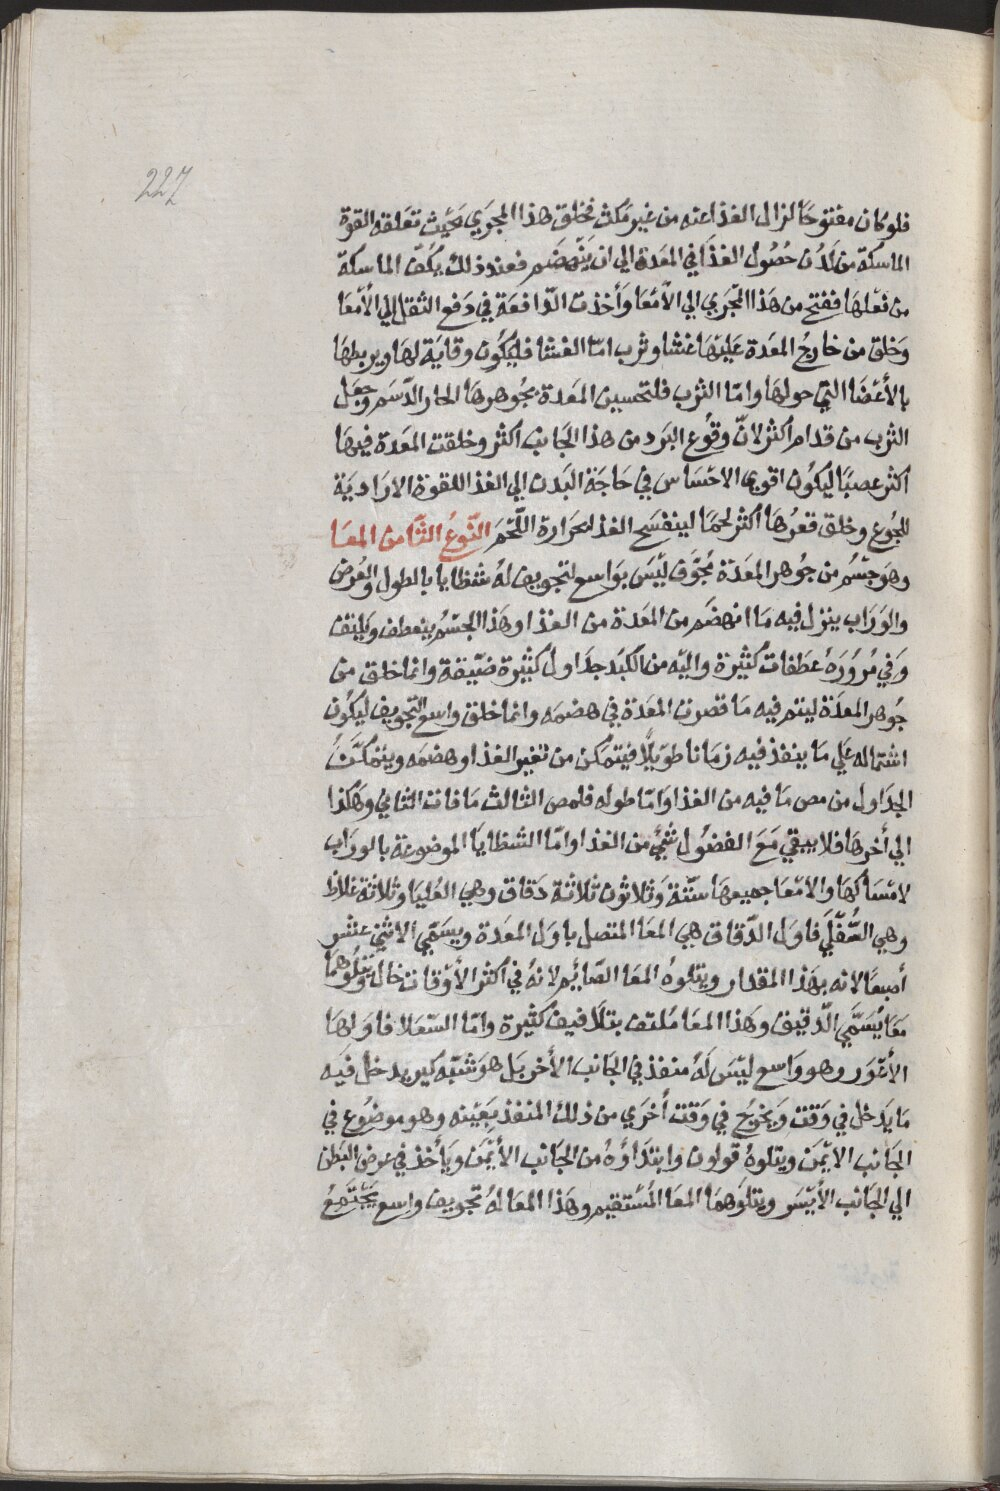 227
فلو كان مفتوحا لزال الغذا عنه من غير مكث فخلق هذا المجري بحيث تعلقه القوة
الماسكة من لدن حصول الغذا في المعدة الي ان ينهضم فعند ذلك يكف الماسكة
من فعلها ففتح من هذا المجري الي الأمعا وأخذت الدافعة في دفع الثقل الي الأمعا
وخلق من خارج المعدة عليها غشا وثرب امّا الغشا فليكون وقاية لها ويربطها
بالأعضا التي حولها وامّا الثرب فلتحسين المعدة بجوهرها الحار الدّسم وجعل
الثرب من قدام أكثر لانّ وقوع البرد من هذا الجانب اكثر وخلقت المعدة فيها
اكثر عصبًا ليكون اقوي الاحساس في حاجة البدن الي الغذا للقوة الارادية
للجوع وخلق قعرها أكثر لحمًا لينفسح الغذا لحرارة اللّحم النّوعُ الثّامن المعا
وهو جسْم من جوهر المعدة مجوّف ليْسَ بواسع لتجويف لهُ شظايا بالطول والعرض
والوراب ينزل فيه ما انهضم من المعدة من الغذا وهذا الجسْم ينعطف ويلتف
وفي مرورهُ عطفات كثيرة واليه من الكبد جداول كثيرة ضيّقة وانما خلق من
جوهر المعدة ليتم فيه ما قصرت المعدة في هضمه وانما خلق واسع التجويف ليكون
اشتماله علي ما ينفذ فيه زمانا طويلًا فيتمكن من تغير الغذا وهضمه ويتمكّن
الجداول من مص ما فيه من الغذا وامّا طوله فلمص الثالث ما فات الثاني وهكذا
الي أخرها فلا يبقي مع الفضول شيء من الغذا وامّا الشظايا الموضوعة بالوراب
لامسَاكها والامعا جميعها ستّة وثلاثون ثلاثة دقاق وهي العُليا وثلاثة غلاظ
وهي السُّفلَي فاول الدّقاق هي المعا المتصل باول المعدة ويسَمّي الاثني عشر
أصبعًا لانه بهذا المقدار ويتلوهُ المعا الصّايم لانهُ في اكثر الأوقات خال ويتلُوهما
معا يُسَمَّي الدّقيق وهذا المعا ملتف بتلافيف كثيرة وامّا السّعلا فاولها
الأعور وهو واسع ليْس لهُ منفذ في الجانب الأخر بل هو شبه كير يدخل فيه
ما يدخل في وقت ويخرج في وقت أخري من ذلك المنفذ بعينه وهو موضوع في
الجانب الايمن ويتلوهُ قولون وابتداؤهُ من الجانب الأيمن ويأخذ في عرض البطن
الي الجانب الأيسَر ويتلوهما المعا المُستقيم وهذا المعا لهُ تجويف واسع يجتمعُ